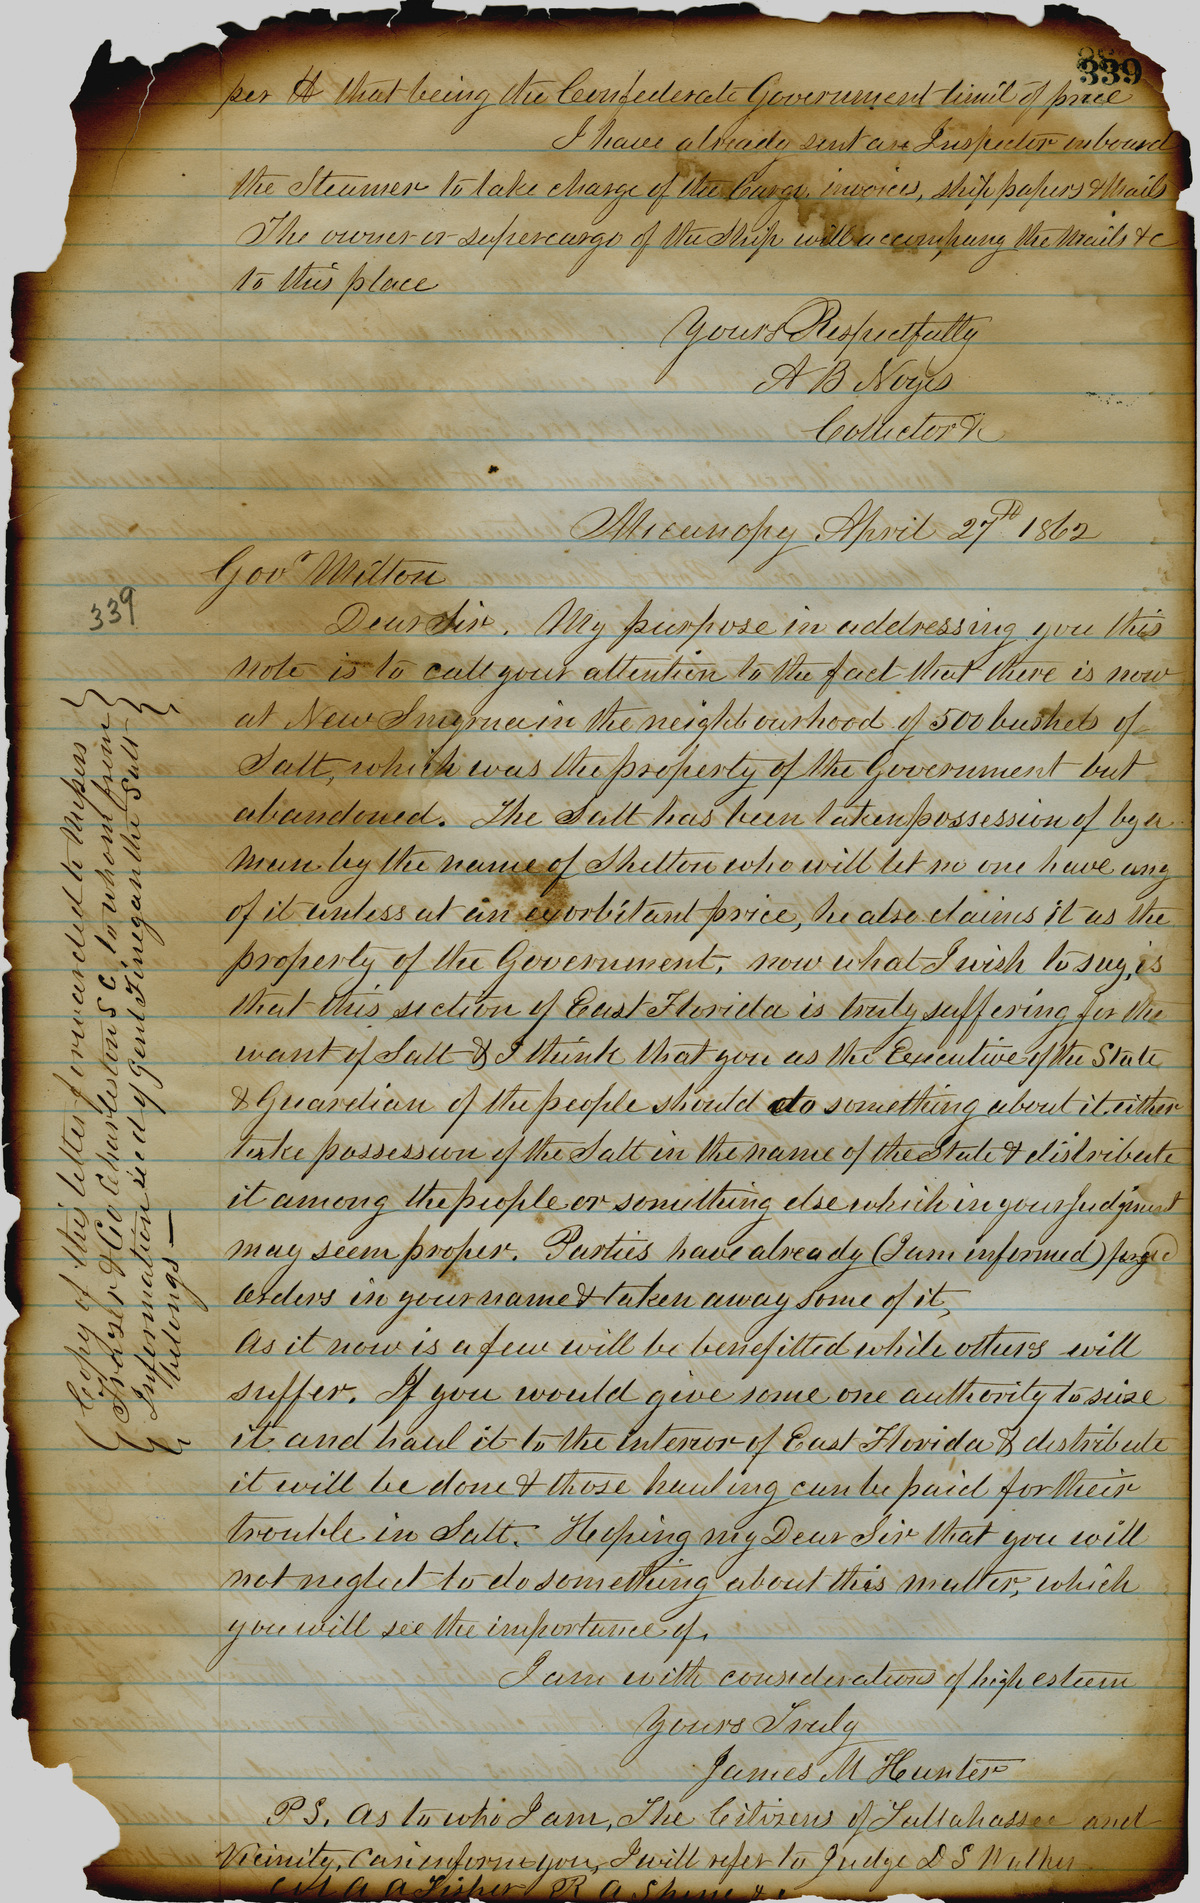 339
per ℔ that being the Confederate Government limit of price
I have already sent an Inspector onboard
the Steamer to take charge of the Cargo, invoices, ship papers & Mails
The owner or supercargo of the Ship will accompany the Mails &c
to this place
Yours Respectfully
A B Noyes
Collector &c
Micanopy April 27th 1862
Govr Milton
339
Dear Sir. My purpose in addressing you this
note is to call your attention to the fact that there is now
at New Smyrna in the neighbourhood of 500 bushels of
Salt, which was the property of the Government but
abandoned. The Salt has been taken possession of by a
man by the name of Shelton who will let no one have any
of it unless at an exorbitant price, he also claims it as the
property of the Government, now what I wish to say, is
that this section of East Florida is truly suffering for the
want of Salt & I think that you as the Executive of the State
& Guardian of the people should do something about it either
take possession of the Salt in the name of the State & distribute
it among the people or something else which in your judgment
may seem proper. Parties have already (I am informed) forged
orders in your name & taken away some of it,
As it now is a few will be benefitted while others will
suffer. If you would give some one authority to seize
it and haul it to the interior of East Florida & distribute
it will be done & those hauling can be paid for their
trouble in Salt. Hoping my Dear Sir that you will
not neglect to do something about this matter, which
you will see the importance of.
I am with considerations of high esteem
Yours Truly
James M Hunter
P.S. As to who I am, The Citizens of Tallahassee and
Vicinity, can inform you, I will refer to Judge D S Walker
A A Fisher R A Shine &c
Copy of this letter forwarded to Messrs
Frazer & Co Charleston S C to whom from
Information recd of Genl Finegan the Salt
belongs —